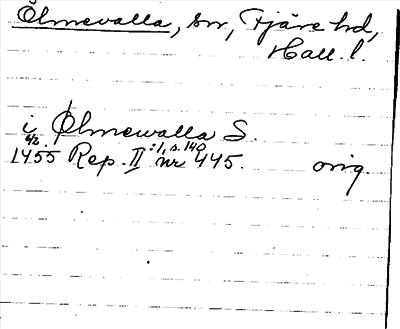 Ölmevalla, sn, Fjäre hd,
Hall. l.
i Ølmewalla S.
6/2 1455 Rep. II:1, s. 140 nr 445. orig.